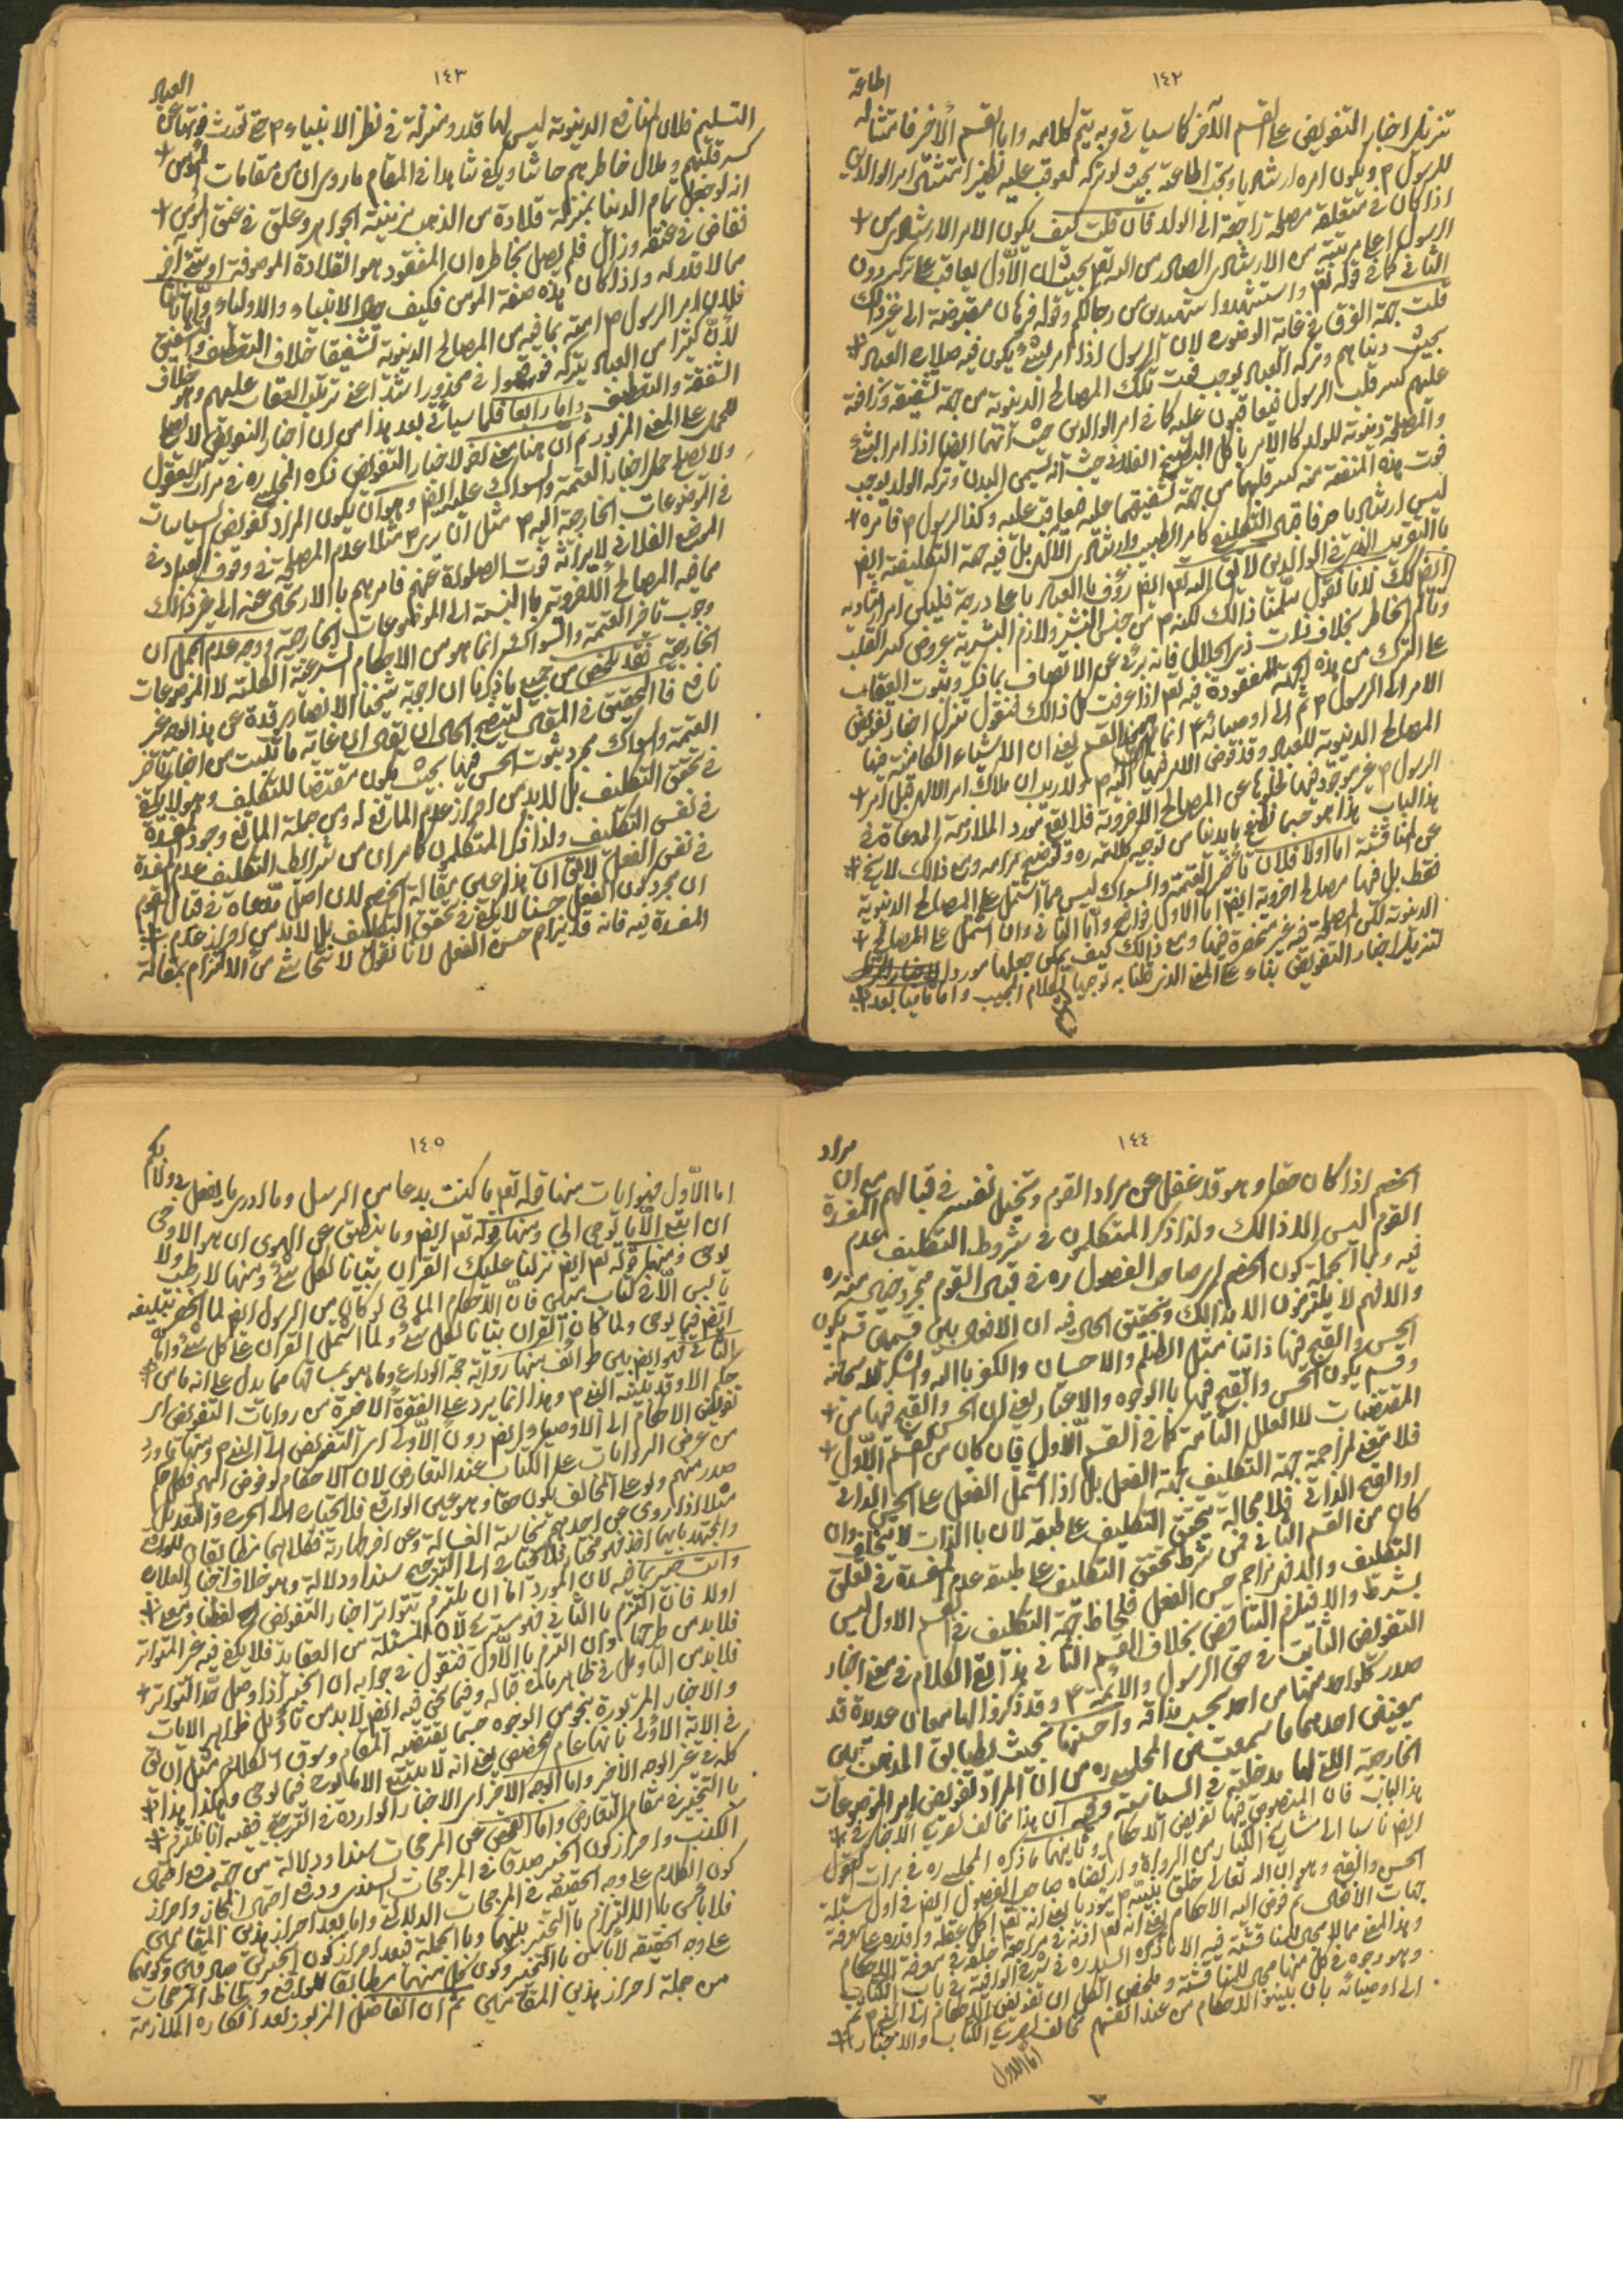 ١٤٢
اطاعة
تنزيل اخبار التفويض على القسم الآخر كما سيأتى وبه يتم كلامه واما القسم الأخر فامتثاله
للرسول ص ويكون امره ارشاديا ويجب اطاعته بحيث لو تركه لعوقب عليه نظير امتثال امر الوالدين
اذا كان فى متعلقه مصلحة راجعة الى الولد فان قلت كيف يكون الامر الارشادى من
الرسول اعلى مرتبة من الارشادى الصادر من الله تعم بحيث ان الأول يعاقب على تركه دون
الثانى كما فى قوله تعم واستشهدوا شهيدين من رجالكم وقوله فرهان مقبوضة الى غير ذلك
قلت جهة الفرق فى غاية الوضوح لان الرسول اذا امر بشئ يكون فيه صلاح العباد
بحيث دنياهم وتركه العباد يوجب فوت تلك المصالح الدنيوية من جهة شفقته ورأفته
عليهم كسر قلب الرسول فيعاقبون عليه كما فى امر الوالدين حيث انهما ايضا اذا امرا بشئ
والمصلحة دنيوية للولد كالامر باكل البطيخ الفلانى حيث انه يسمن البدن وتركه الولد يوجب
فوت هذه المنفعة منه كسر قلبهما من جهة شفقتهما عليه فيعاقب عليه وكذا الرسول ص فامره
ليس ارشاديا صرفا خالى التكليف كامر الطبيب وارشادى الآلهى بل فيه جهة التكليفية ايض
بالتقريب الذى فى الوالدين لا يقال الله تعم ايض رؤف بالعباد باعلى درجة فليكن امر ارشاديه
ايض كك لانا نقول سلمنا ذالك لكنه ص من جنس البشر ولازم البشرية عروض كسر القلب
وتألم الخاطر بخلاف ذات ذى الجلال فانه برئ عن الاتصاف بما ذكر وثبوت العقاب
على الترك من هذه الجهة المفقودة فيه تعم اذا عرفت كل ذالك فنقول تنزل اخبار تفويض
الامر الى الرسول ص ثم الى اوصيائه ع انما هو بهذا القسم يعنى ان الاشياء الكامنة فيها
المصالح الدنيوية للعباد وقد فوض الامر فيها اليه ص ولا ريب ان ملاك امر الآلهى قبل امر
الرسول ص غير موجود فيها لخلوها عن المصالح الاخروية فلا يقع مورد الملازمة المدعاة فى
هذا الباب هذا هو حسبما نطبع بايدينا من توجيه كلامه ره وتوضيح مرامه ومع ذالك لا يخ
عن المناقشة اما اولا فلان تأخير العتمة والسواك ليس مما اشتمل على المصالح الدنيوية
فقط بل فيها مصالح اخروية ايض اما الاول فواضح واما الثانى وان اشتمل على المصالح
الدنيوية لكن المصلحة فيه غير منحصرة فيها ومع ذالك كيف يمكن جعلها مورد
لتنزيل اخبار التفويض بناء على المعنى الذى ظننا به توجيها لكلام المجيب واما ثانيا بعد
١٤٣
العباد
التسليم فلان المنافع الدنيوية ليس لها قدر ومنزلة فى نظر الانبياء ص حتى تورث فوتها عن
كسر قلبهم وملال خاطرهم حاشا ويكفى شاهدا فى المقام ما روى ان من مقامات المؤمن
انه لو جعل تمام الدنيا بمنزلة قلادة من الذهب مزينة بالجواهر وعلق فى عنق المؤمن
ففاض فى عنقه وزال فلم يصل بخاطره ان المفقود هو القلادة الموصوفة او شئ آخر
مما لا قدر له واذا كان هذه صفة المؤمن فكيف حال الانبياء والاولياء واما ثالثا
فلان امر الرسول ص امته بما فيه من المصالح الدنيوية تشفيقا خلاف التعطيف والشفيق
لأن كثيرا من العباد يتركه فوقعوا فى محذور اشد اعنى ترتب العقاب عليهم وهو خلاف
الشفقة والتعطيف واما رابعا فلما سيأتى بعد هذا من ان اخبار التفويض لا يصلح
للحمل على المعنى المزبور ثم ان هنا معنى آخر لاخبار التفويض ذكره المجلسى ره فى مرآت العقول
ولا يصلح حمل اخبار العتمة والسواك عليه ايض وهو ان يكون المراد تفويض السياسات
فى الموضوعات الخارجة اليه ص مثل ان يرى ص مثلا عدم المصلحة فى وقوف العباد فى
الموضع الفلانى لايراثه فوت الصلوة عنهم فامرهم بالارتحال عنه الى غير ذالك
مما فيه المصالح الاخروية بالنسبة الى الموضوعات الخارجة ووجه عدم الحمل ان
وجوب تأخر العتمة والسواك انما هو من الاحكام الشرعية الكلية لا الموضوعات
الخارجة فقد تلخص من جميع ما ذكرنا ان اجوبة شيخنا الانصارى قده عن هذا الوجه غير
نافع فالتحقيق فى المقال ليتضح الحال ان يقال ان غاية ما ثبت من اخبار تأخر
العتمة والسواك مجرد ثبوت الحسن فيها بحيث يكون مقتضيا للتكليف وهو لا يكفى
فى تحقق التكليف بل لا بد من احراز عدم المانع له ومن جملة المانع وجود المفسدة
فى نفس التكليف ولذا ذكر المتكلمون كما مر ان من شرائط التكليف عدم المفسدة
فى نفس الفعل لا يقال ان هذا عين مقالة الخصم لان اصل مدعاه فى قبال القوم
ان مجرد كون الفعل حسنا لا يكفى فى تحقق التكليف بل لا بد من احراز عدم
المفسدة فيه فانه قد يزاحم حسن الفعل لانا نقول لا نتحاشى من الالتزام بمقالة
١٤٤
مراد
الخصم اذا كان حقا وهو قد غفل عن مراد القوم وتخيل نفسه فى قبالهم مع ان
القوم ليس الا ذالك ولذا ذكر المتكلمون فى شروط التكليف عدم المفسدة
فيه وبالجملة كون الخصم اى صاحب الفصول ره فى قبال القوم مجرد خيال منه ره
والا فهم لا يلتزمون الا بذالك وتحقيق الحال فيه ان الافعال على قسمين قسم يكون
الحسن والقبح فيها ذاتيا مثل الظلم والاحسان والكفر بالله والشكر له سبحانه
وقسم يكون الحسن والقبح فيها بالوجوه والاعتبار يعنى ان الحسن والقبح فيها من
المقتضيات لا العلل التامة كما فى القسم الأول فان كان من القسم الأول
فلا تقع مزاحمة جهة التكليف بجهة الفعل بل اذا اشتمل الفعل على الحسن الذاتى
او القبح الذاتى فلا محالة يتحقق التكليف على طبقه لان بالذات لا يتخلف وان
كان من القسم الثانى فمن شرط تحقق التكليف على طبقه عدم المفسدة فى تعلق
التكليف والا قد تزاحم حسن الفعل فلحاظ جهة التكليف فى القسم الاول ليس
بشرط والا فيلزم التناقض بخلاف القسم الثانى هذا تمام الكلام فى معنى اخبار
التفويض الثابت فى حق الرسول والائمة ع وقد ذكروا لها معان عديدة قد
صدر كلواحد منها من احد بحسب مذاقه واحسنها بحيث يطابق المذهب على
معنيين احدهما ما سمعت عن المجلسى ره من ان المراد تفويض امر الموضوعات
الخارجة التى لها مدخلية فى السياسة وفيه ان هذا مخالف لصريح الأخبار فى
هذا الباب فان المنصوص فيها تفويض الاحكام وثانيهما ما ذكره المجلسى ره فى مرآت العقول
ايض ناسبا الى مشايخ الكبار من الرواة وارتضاه صاحب الفصول ايض فى اول مسئلة
الحسن والقبح وهو ان الله تعالى خلق نبيه ص مؤدبا يعنى انه تعم اكمل عقله واقدره على معرفة
جهات الافعال ثم فوض اليه الاحكام يعنى انه تعم اذنه فى مراجعة خلقه فى معرفة الاحكام
وهذا المعنى مما لا مجال للمناقشة فيه الا ما ذكره السيد ره فى شرح الوافية فى باب الكتاب
وهو وجوه فى كل منها مجال للمناقشة وملخص الكل ان تفويض الاحكام الى النبى ص ثم
الى اوصيائه بان يبينوا الاحكام من عند انفسهم مخالف لصريح الكتاب والاخبار
اما الاول
١٤٥
بكم
اما الأول فهو ايات منها قوله تعم ما كنت بدعا من الرسل وما ادرى ما يفعل بى ولا
ان اتبع الا ما يوحى الى ومنها قوله تعم ايض وما ينطق عن الهوى ان هو الا وحى
يوحى ومنها قوله تعم ايض نزلنا عليك القرآن تبيانا لكل شئ ومنها لا رطب ولا
يابس الا فى كتاب مبين فان الأحكام المأتى لو كان من الرسول ايض لما انحصر تبليغه
ايض فيما يوحى ولما كان القرآن تبيانا لكل شئ ولما اشتمل القرآن على كل شئ واما
الثانى فهو ايض على طوائف منها رواية حجة الوداع وما هو بمساقها مما يدل على انه ما من
حكم الا وقد بلغه النبى ص وهذا انما يرد على الفقرة الاخيرة من روايات التفويض اى
تفويض الاحكام الى الاوصياء ايض دون الأولى اى التفويض الى النبى ص ومنها ما ورد
من عرض الروايات على الكتاب عند التعارض لان الاحكام لو فوض اليهم فكل حكم
صدر منهم ولو على المخالف يكون حقا وهو عين الواقع فلا يحتاج الى الجرح والتعديل
مثلا اذا روى عن احدهم نجاسة الغسالة وعن اخر طهارته فكلاهما مطابقان للواقع
والمجتهد بايهما اخذ فهو مختار فلا يحتاج الى الترجيح سندا ودلالة وهو خلاف اخبار العلاج
وانت خبير بما فيه لان المورد اما ان يلتزم بتواتر اخبار التفويض لفظا ومعنى
اولا فان التزم بالثانى فهو مستريح لان المسئلة من العقايد فلا يكفى فيه غير المتواتر
فلا بد من طرحها وان التزم بالأول فنقول فى جوابه ان الخبر اذا وصل حد التواتر
فلا بد من التأويل فى ظاهر ما له قباله وفيما نحن فيه ايض لا بد من تأويل ظواهر الايات
والاخبار المزبورة بنحو من الوجوه حسبما يقتضيه المقام وسوق الكلام مثل ان يق
فى الاية الأولى بانها عام مخصص يعنى انه لا يتبع الا بما يوحى فيما يوحى وهكذا هذا
كله فى غير الوجه الأخير واما الوجه الأخير اى الاخبار الواردة فى الترجيح ففيه انا نلتزم
بالتخيير فى مقام التعارض واما الفحص عن المرجحات سندا ودلالة من جهة دفع احتمال
الكذب واحراز كون الخبر صدقا فى المرجحات السندى ودفع احتمال المجاز واحراز
كون الكلام على وجه الحقيقة فى المرجحات الدلالى واما بعد احراز هذين المقامين
فلا باس بالالتزام بالتخيير بينهما وبالجملة فبعد احراز كون الخبرين صادقين وكونهما
على وجه الحقيقة لا باس بالتخيير وكون كل منهما مطابقا للواقع ولحاظ المرجحات
من جملة احراز هذين المقامين ثم ان الفاضل المزبور بعد انكاره الملازمة